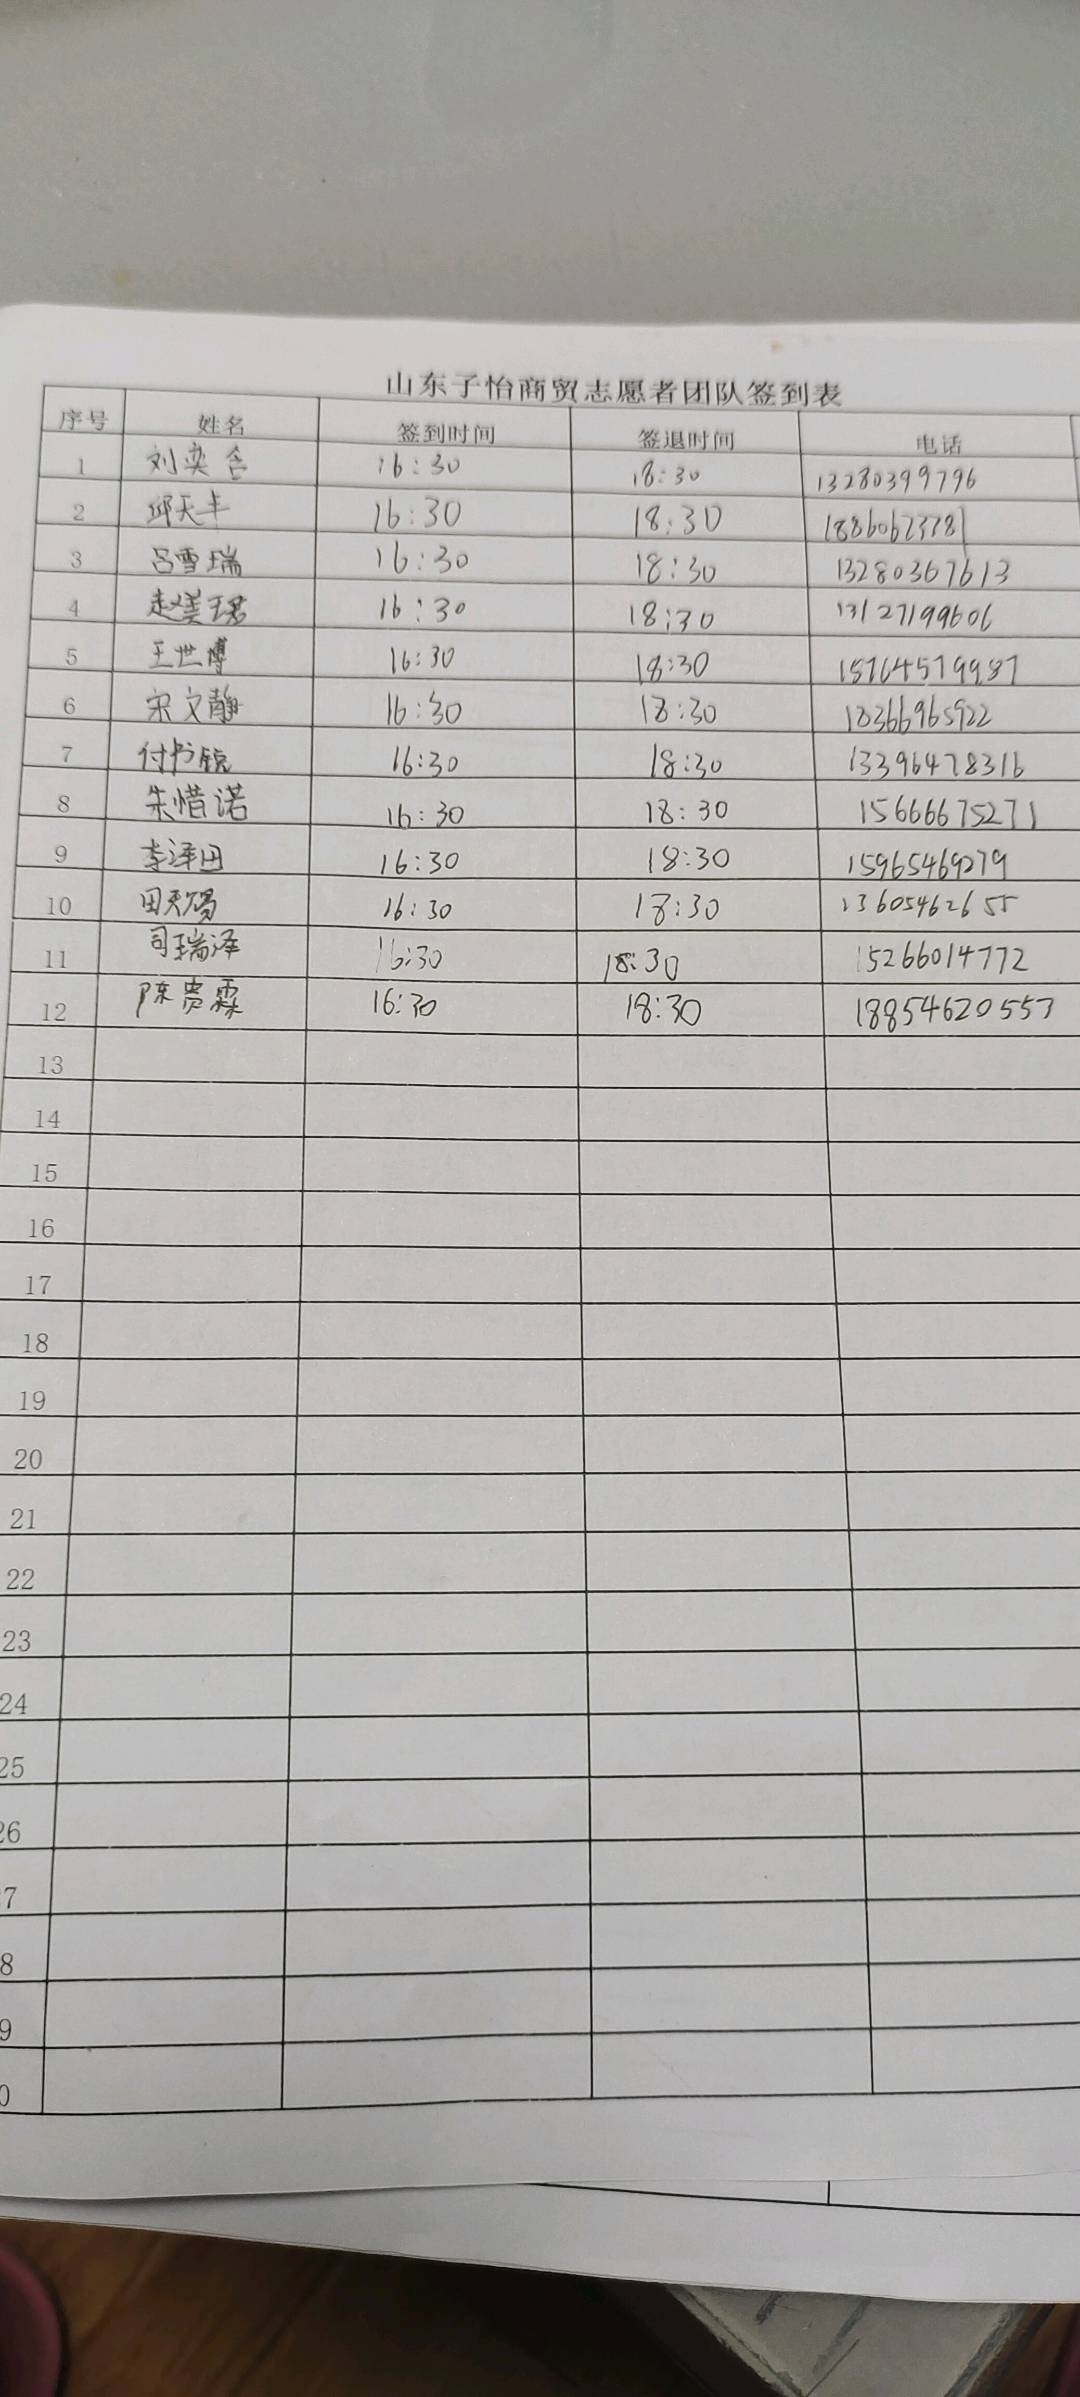 山东子怡商贸志愿者团队签到表
序号 姓名 签到时间 签退时间 电话
1 刘奕含 16:30 18:30 13280399796
2 邱天丰 16:30 18:30 18860623781
3 吕雪瑞 16:30 18:30 13280367613
4 赵美珺 16:30 18:30 13127199606
5 王世博 16:30 18:30 15764579987
6 宋文静 16:30 18:30 18366965922
7 付书锐 16:30 18:30 13396478316
8 朱惜诺 16:30 18:30 15666675271
9 李泽田 16:30 18:30 15965469279
10 田天赐 16:30 18:30 13605462655
11 司瑞泽 16:30 18:30 15266014772
12 陈贵霖 16:30 18:30 18854620557
13
14
15
16
17
18
19
20
21
22
23
24
25
26
7
8
9
0